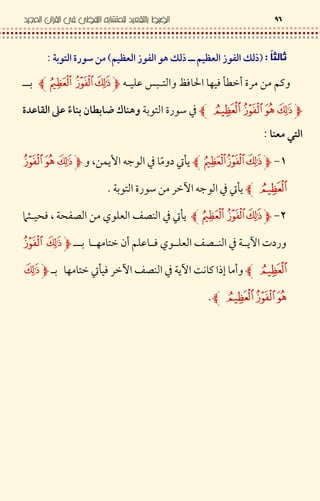 ٩٦ الضبط بالتقعيد للمتشابه اللفظي في القرآن المجيد
ثالثاً : (ذلك الفوز العظيم ــ ذلك هو الفوز العظيم) من سورة التوبة :
وكم من مرة أخطأ فيها الحافظ والتبس عليه ﴿ ذَٰلِكَ ٱلْفَوْزُ ٱلْعَظِيمُ ﴾ بـــ
﴿ ذَٰلِكَ هُوَ ٱلْفَوْزُ ٱلْعَظِيمُ ﴾ في سورة التوبة وهناك ضابطان بناءً على القاعدة
التي معنا :
١- ﴿ ذَٰلِكَ ٱلْفَوْزُ ٱلْعَظِيمُ ﴾ يأتي دومًا في الوجه الأيمن، و ﴿ ذَٰلِكَ هُوَ ٱلْفَوْزُ
ٱلْعَظِيمُ ﴾ يأتي في الوجه الآخر من سورة التوبة .
٢- ﴿ ذَٰلِكَ ٱلْفَوْزُ ٱلْعَظِيمُ ﴾ يأتي في النصف العلوي من الصفحة ، فحيثما
وردت الآية في النصف العلوي فاعلم أن ختامها بـــ ﴿ ذَٰلِكَ ٱلْفَوْزُ
ٱلْعَظِيمُ ﴾ وأما إذا كانت الآية في النصف الآخر فيأتي ختامها بـ ﴿ ذَٰلِكَ
هُوَ ٱلْفَوْزُ ٱلْعَظِيمُ ﴾.